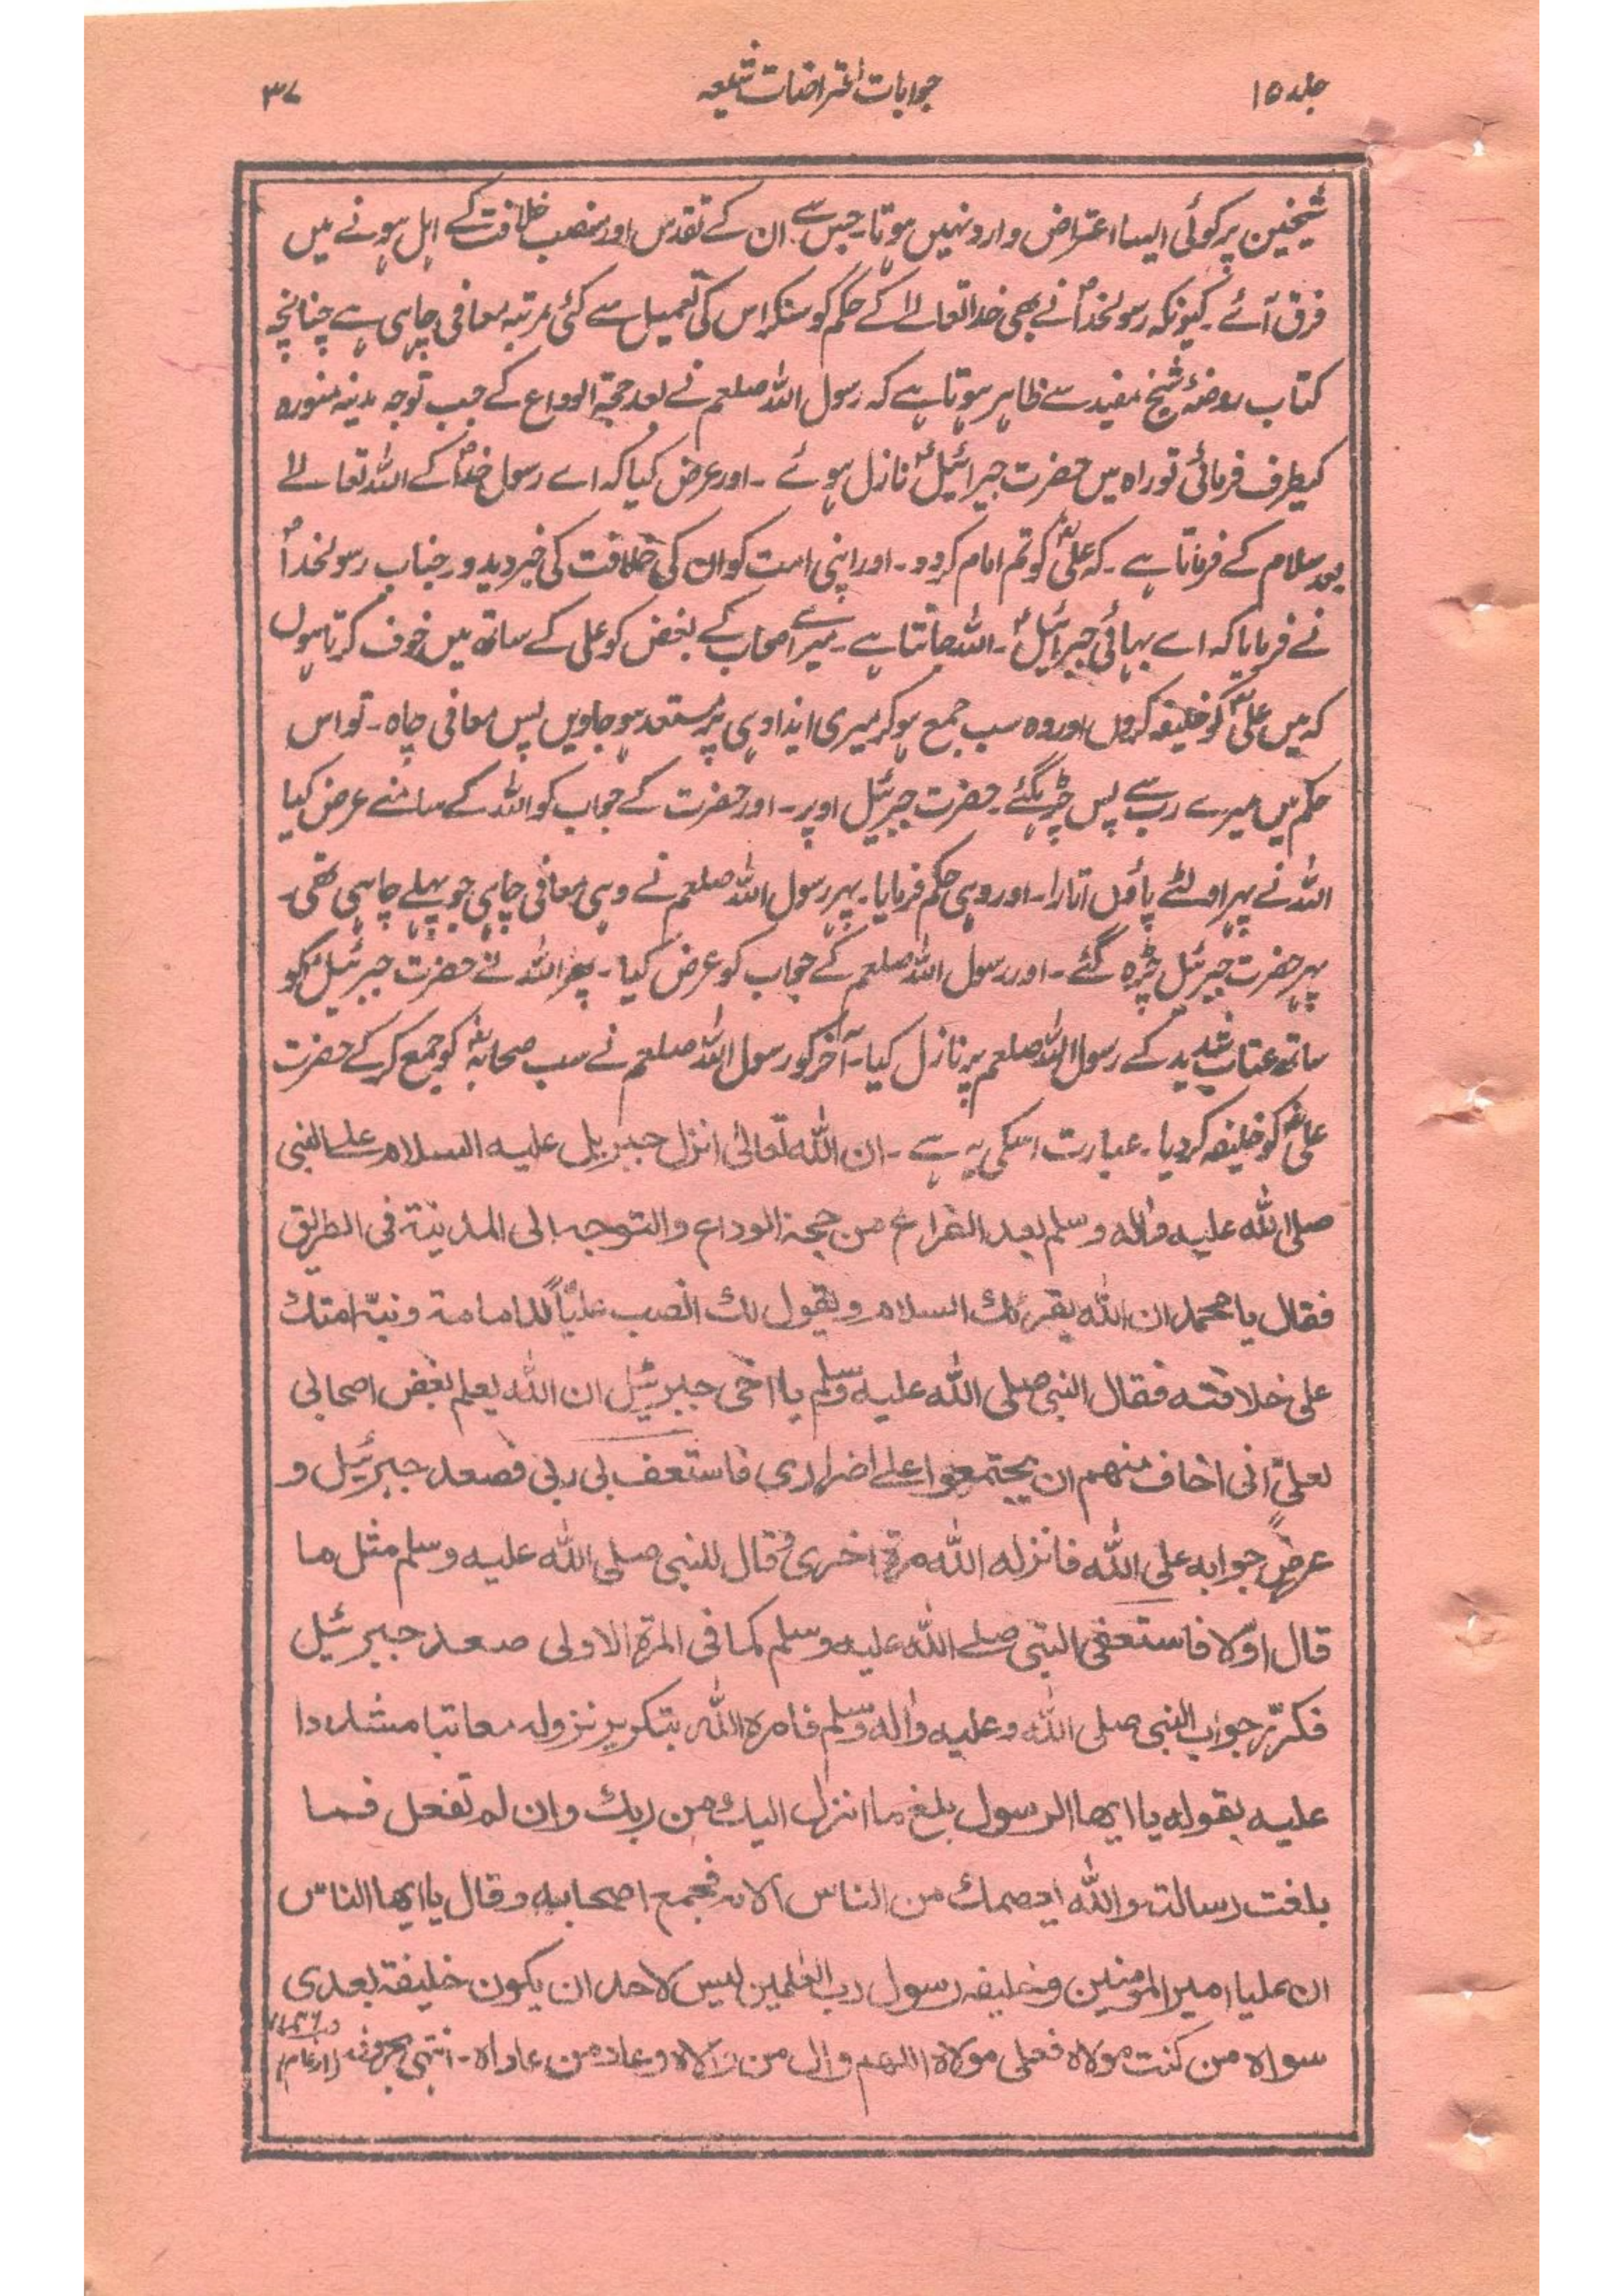 جلد ۱۵
جوابات اعتراضات شیعہ
۳۷
شیخین پر کوئی ایسا اعتراض وارد نہیں ہوتا۔ جس سے ان کے تقدس اور منصب خلافت کے اہل ہونے میں
فرق آئے۔ کیونکہ رسولخداؐ نے بھی خدا تعالےٰ کے حکم کو سنکر اس کی تعمیل سے کئی مرتبہ معافی چاہی ہے چنانچہ
کتاب روضۂ شیخ مفید سے ظاہر ہوتا ہے کہ رسول اللہ صلعم نے بعد حجۃ الوداع کے جب توجہ مدینہ منورہ
کیطرف فرمائی تو راہ میں حضرت جبرائیلؑ نازل ہوئے۔ اور عرض کیا کہ اے رسول خداؐ کے اللہ تعالےٰ
بعد سلام کے فرماتا ہے۔ کہ علیؓ کو تم امام کر دو۔ اور اپنی امت کو ان کی خلافت کی خبر دیدو۔ جناب رسولخداؐ
نے فرمایا کہ اے بہائی جبرائیلؑ۔ اللہ جانتا ہے۔ میرے اصحاب کے بغض کو علی کے ساتھ میں خوف کرتا ہوں
کہ میں علیؓ کو خلیفہ کروں اور وہ سب جمع ہو کر میری ایذا دہی پر مستعد ہو جاویں پس معافی چاہ۔ تو اس
حکم میں میرے رب سے پس چڑہگئے۔ حضرت جبرئیل اوپر۔ اور حضرت کے جواب کو اللہ کے سامنے عرض کیا
اللہ نے پہر اولٹے پاؤں اتارا۔ اور وہی حکم فرمایا۔ پہر رسول اللہ صلعم نے وہی معافی چاہی جو پہلے چاہی تھی۔
پہر حضرت جبرئیل چڑہ گئے۔ اور رسول اللہ صلعم کے جواب کو عرض کیا۔ پھر اللہ نے حضرت جبرئیلؑ کو
ساتھ عتاب شدید کے رسول اللہ صلعم پر نازل کیا۔ آخر کو رسول اللہ صلعم نے سب صحابہؓ کو جمع کر کے حضرت
علیؓ کو خلیفہ کر دیا۔ عبارت اسکی یہ ہے۔ ان اللہ تعالیٰ انزل جبریل علیہ السلام علے النبی
صلی اللہ علیہ واٰلہ وسلم بعد الفراغ من حجۃ الوداع والتوجہ الی المدینۃ فی الطریق
فقال یا محمد ان اللہ یقرئک السلام ویقول لک انصب علیّاً للامامۃ ونبّہ امتک
علی خلافتہ فقال النبی صلی اللہ علیہ وسلم یا اخی جبرئیل ان اللہ یعلم بغض اصحابی
لعلیٍّ انی اخاف منهم ان یجتمعوا علے اضراری فاستعف لی ربی فصعد جبرئیل و
عرض جوابہ علی اللہ فانزلہ اللہ مرۃ اخری وقال للنبی صلی اللہ علیہ وسلم مثل ما
قال اوّلا فاستعفی النبی صلے اللہ علیہ وسلم کما فی المرۃ الاولی صعد جبرئیل
فکرّر جواب النبی صلی اللہ وعلیہ واٰلہ وسلم فامرہ اللہ بتکریر نزولہ معاتبا مشددا
علیہ بقولہ یا ایها الرسول بلغ ما انزل الیک من ربک وان لم تفعل فما
بلغت رسالتہ واللہ یعصمک من الناس الایہ فجمع اصحابہ وقال یا ایها الناس
ان علیا امیر المومنین وخلیفہ رسول رب العٰلمین لیس لاحد ان یکون خلیفۃ بعدی
سواہ من کنت مولاہ فعلی مولاہ اللهم وال من والاہ وعاد من عاداہ۔ انتہی بحروفہ